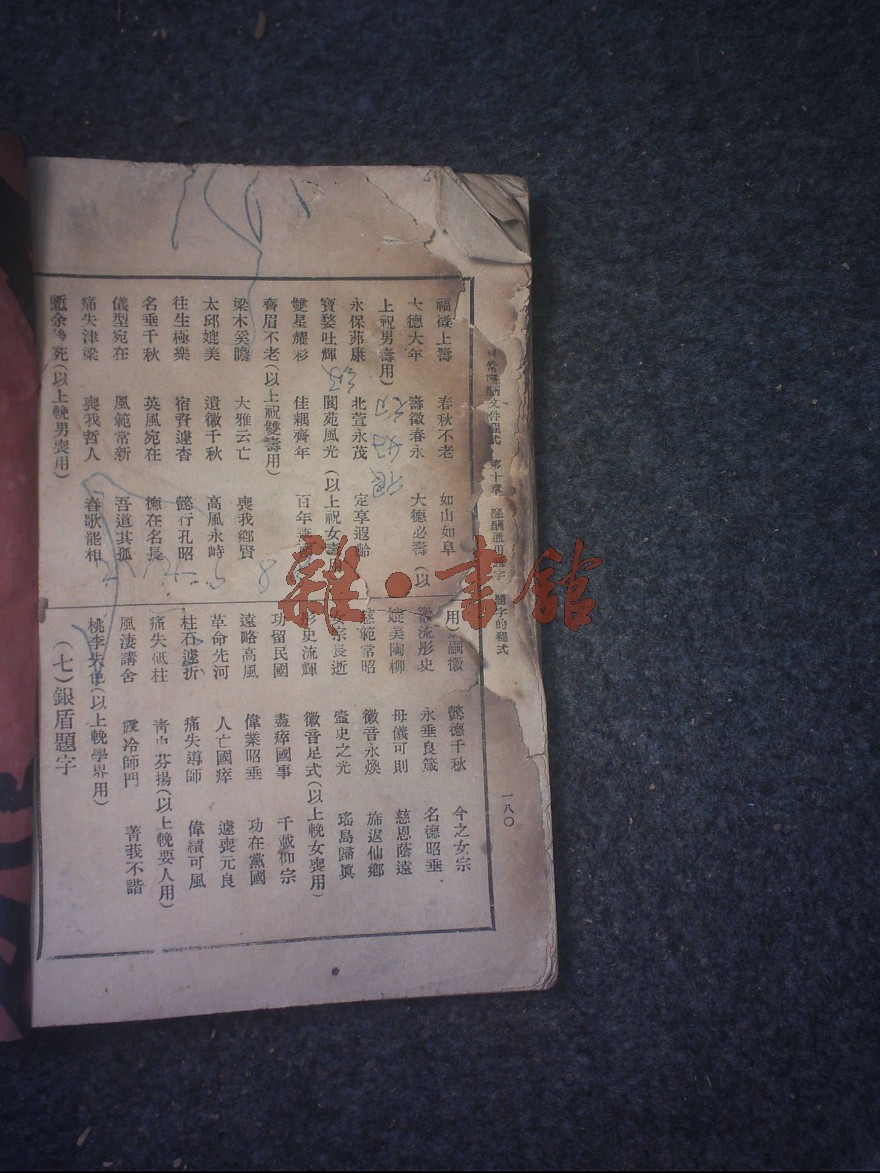 第十章
題字的程式
一八〇
福徵上壽 春秋不老 如山如阜
大德大年 壽徵春永 大德必壽 (以
上祝男壽用)
永保茀康 北萱永茂 定享遐齡
寶婺吐輝 閬苑風光 (以上祝女壽用)
雙星耀彩 佳耦齊年 百年
齊眉不老 (以上祝雙壽用)
梁木奚瞻 大雅云亡 喪我鄉賢
太邱媲美 遺徽千秋 高風永峙
往生極樂 宿齊遽杳 懿行孔昭
名垂千秋 英風宛在 德在名長
儀型宛在 風範常新 吾道其孤
痛失津梁 喪我哲人 春歌罷相
(以上輓男喪用)
用) 嗣徽 懿德千秋 今之女宗
流彤史 永垂良箴 名德昭垂
媲美陶柳 母儀可則 慈恩蔭遠
慈範常昭 徽音永煥 旆返仙鄉
女宗長逝 壼史之光 瑤島歸眞
彤史流輝 徽音足式 (以上輓女喪用)
功留民國 盡瘁國事 千載仰宗
遠略高風 偉業昭垂 功在黨國
革命先河 人亡國瘁 遽喪元良
柱石遽折 痛失導師 偉績可風
痛失砥柱 芬揚 (以上輓要人用)
風淒講舍 冷師門 菁莪不諧
桃李 (以上輓學界用)
(七) 銀盾題字
雜·書館